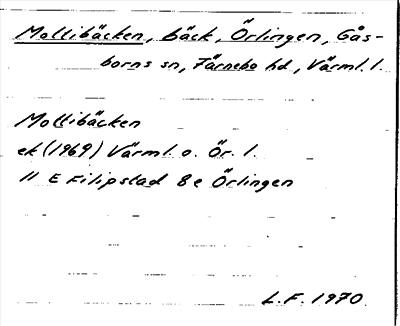 Mollibäcken, bäck, Örlingen, Gås-
borns sn, Färnebo hd, Värml. l.
Mollibäcken
ek (1969) Värml. o. Ör. l.
11 E Filipstad 8e Örlingen
L.F. 1970